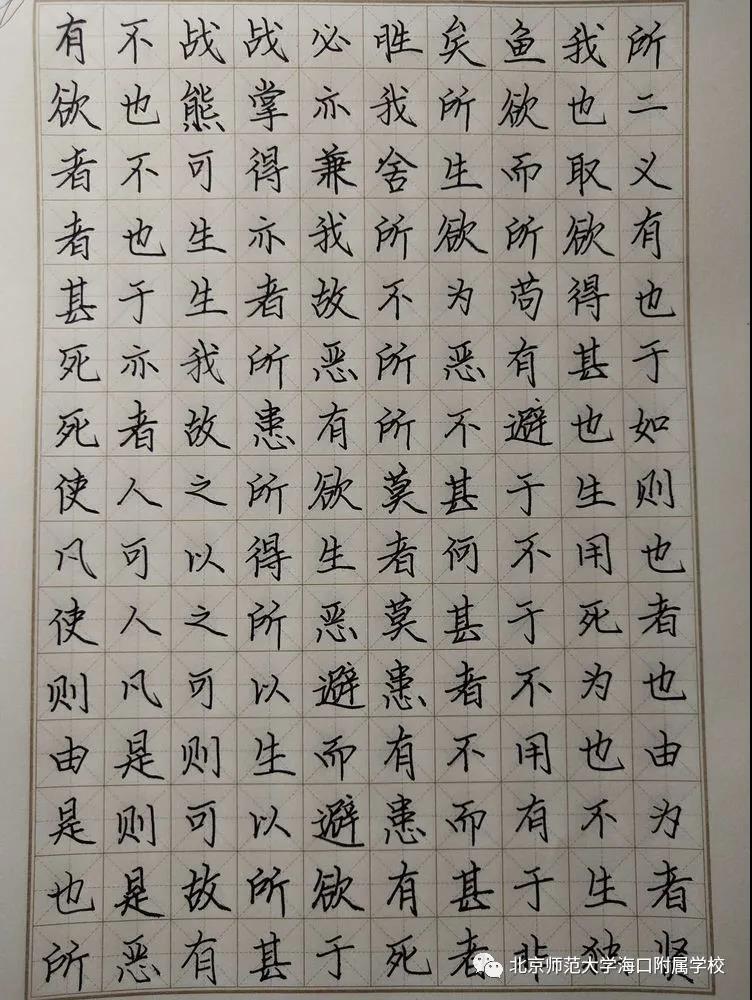 有不战战必胜矣鱼我所
欲也熊掌亦我所欲也二
者不可得兼舍生而取义
者也生亦我所欲所欲有
甚于生者故不为苟得也
死亦我所恶所恶有甚于
死者故患有所不避也如
使人之所欲莫甚于生则
凡可以得生者何不用也
使人之所恶莫甚于死者
则凡可以避患者不为也
由是则生而有不用也由
是则可以避患而有不为
也是故所欲有甚于生者
所恶有甚于死者非独贤
北京师范大学海口附属学校